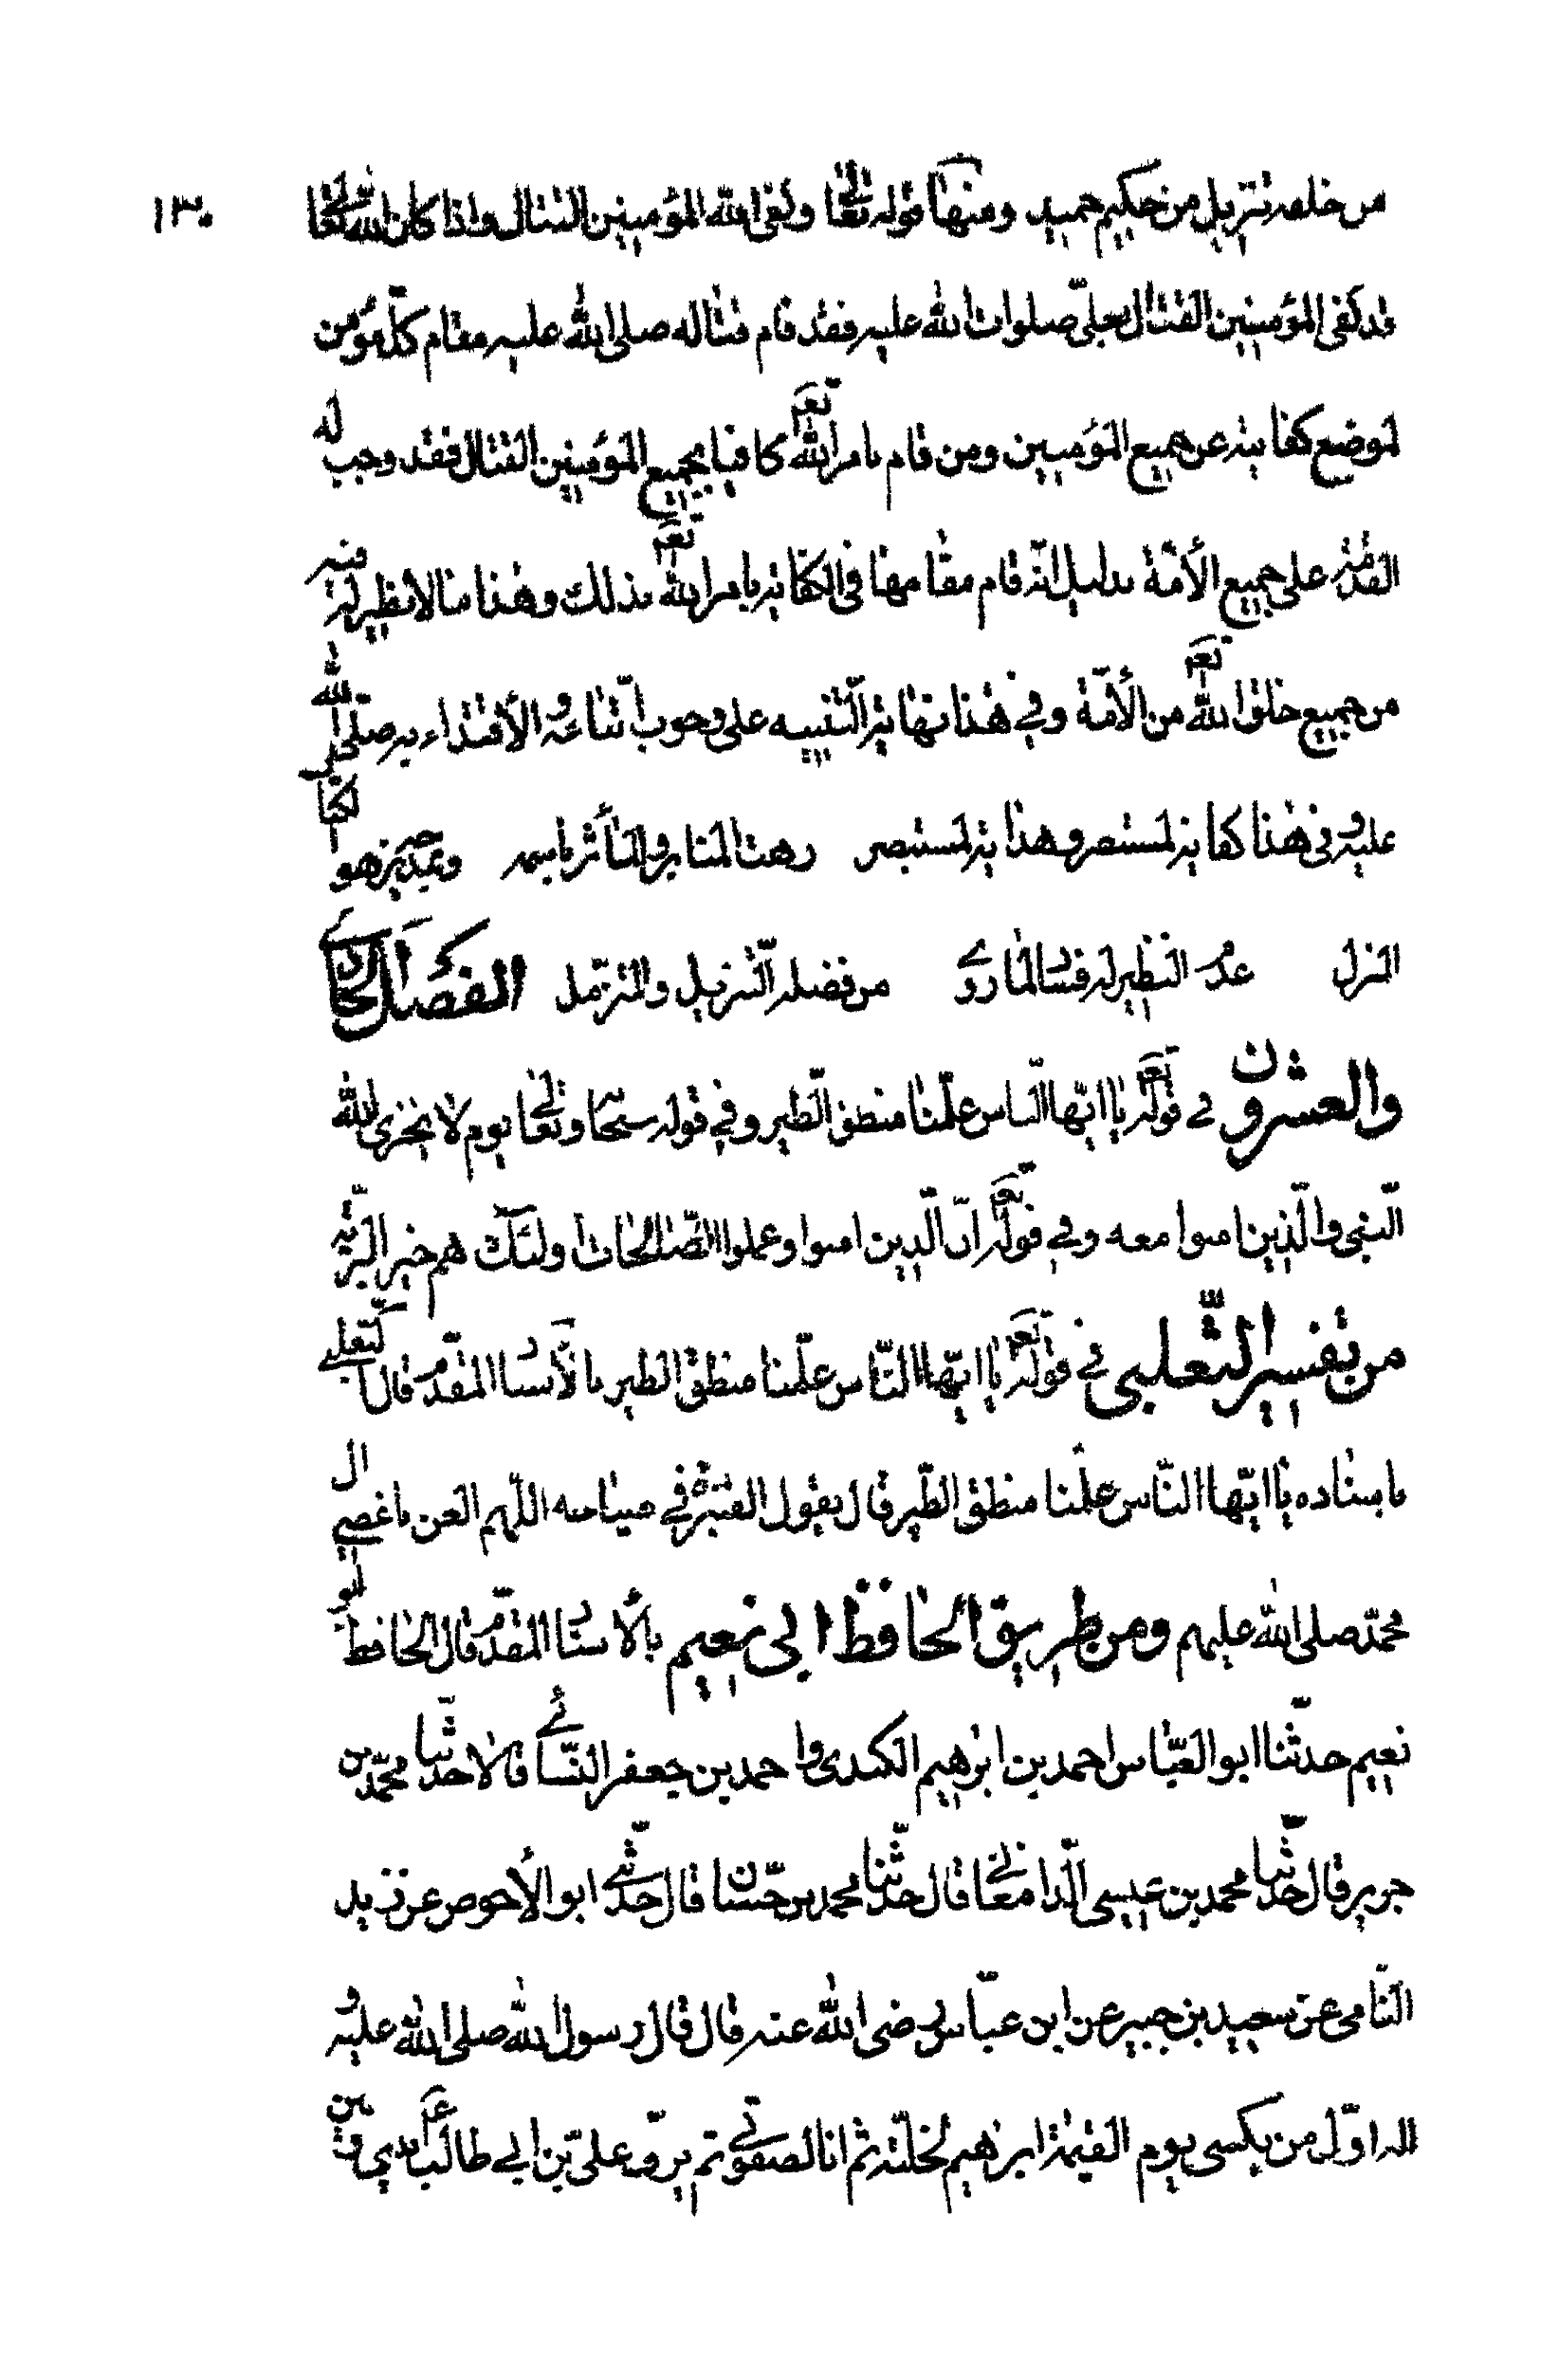 ١٣٠
من خلفه تنزيل من حكيم حميد ومنها قوله تعالى وكفى الله المؤمنين القتال واذا كان الله تعالى
قد كفى المؤمنين القتال بعلي صلوات الله عليه فقد قام قتاله صلى الله عليه مقام كل مؤمن
لموضع كفايته عن جميع المؤمنين ومن قام بامر الله تعالى كافيا بجميع المؤمنين القتال فقد وجب له
القدمة على جميع الأمّة بدليل انّه قام مقامها في الكفاية بامر الله تعالى بذلك وهذا ما لا نظير له فيه
من جميع خلق الله تعالى من الأمّة وفي هذا نهاية التنبيه على وجوب اتباعه والأقتداء به صلى الله
عليه وفي هذا كفاية لمستبصر وهداية لمستبصر رهت المنابر والمآثر باسمه وبمديحه هو الكتاب
المنزل عدم النظير له فساد الماروى من فضله التنزيل والمتزمل الفصل الحادى
والعشرون في قوله تعالى يا ايّها النّاس علّمنا منطق الطّير وفي قوله سبحانه وتعالى يوم لا يخزى الله
النّبى والّذين امنوا معه وفي قوله تعالى انّ الّذين امنوا وعملوا الصّالحات اولئك هم خير البريّة
من تفسير الثّعلبى في قوله تعالى يا ايّها النّاس علّمنا منطق الطير بالأسناد المقدّم قال الثعلبي
باسناده يا ايّها النّاس علّمنا منطق الطّير قال يقول القنبرة في صياحه اللّهم العن باغضي ال
محمّد صلى الله عليهم ومن طريق الحافظ ابى نعيم بالأسناد المقدّم قال الحافظ ابو
نعيم حدّثنا ابو العبّاس احمد بن ابرهيم الكندى واحمد بن جعفر النّسائي قالا حدّثنا محمّد بن
جرير قال حدّثنا محمد بن عيسى الدّامغاني قال حدّثنا محمد بن حسّان قال حدّثني ابو الأحوص عن زبيد
النامى عن سعيد بن جبير عن ابن عبّاس رضى الله عنه قال قال رسول الله صلى الله عليه و
اله اوّل من يكسى يوم القيمة ابرهيم لخلّته ثم انا لصفوتي ثم يزوّ علىّ بن ابي طالب ع بيني وبين